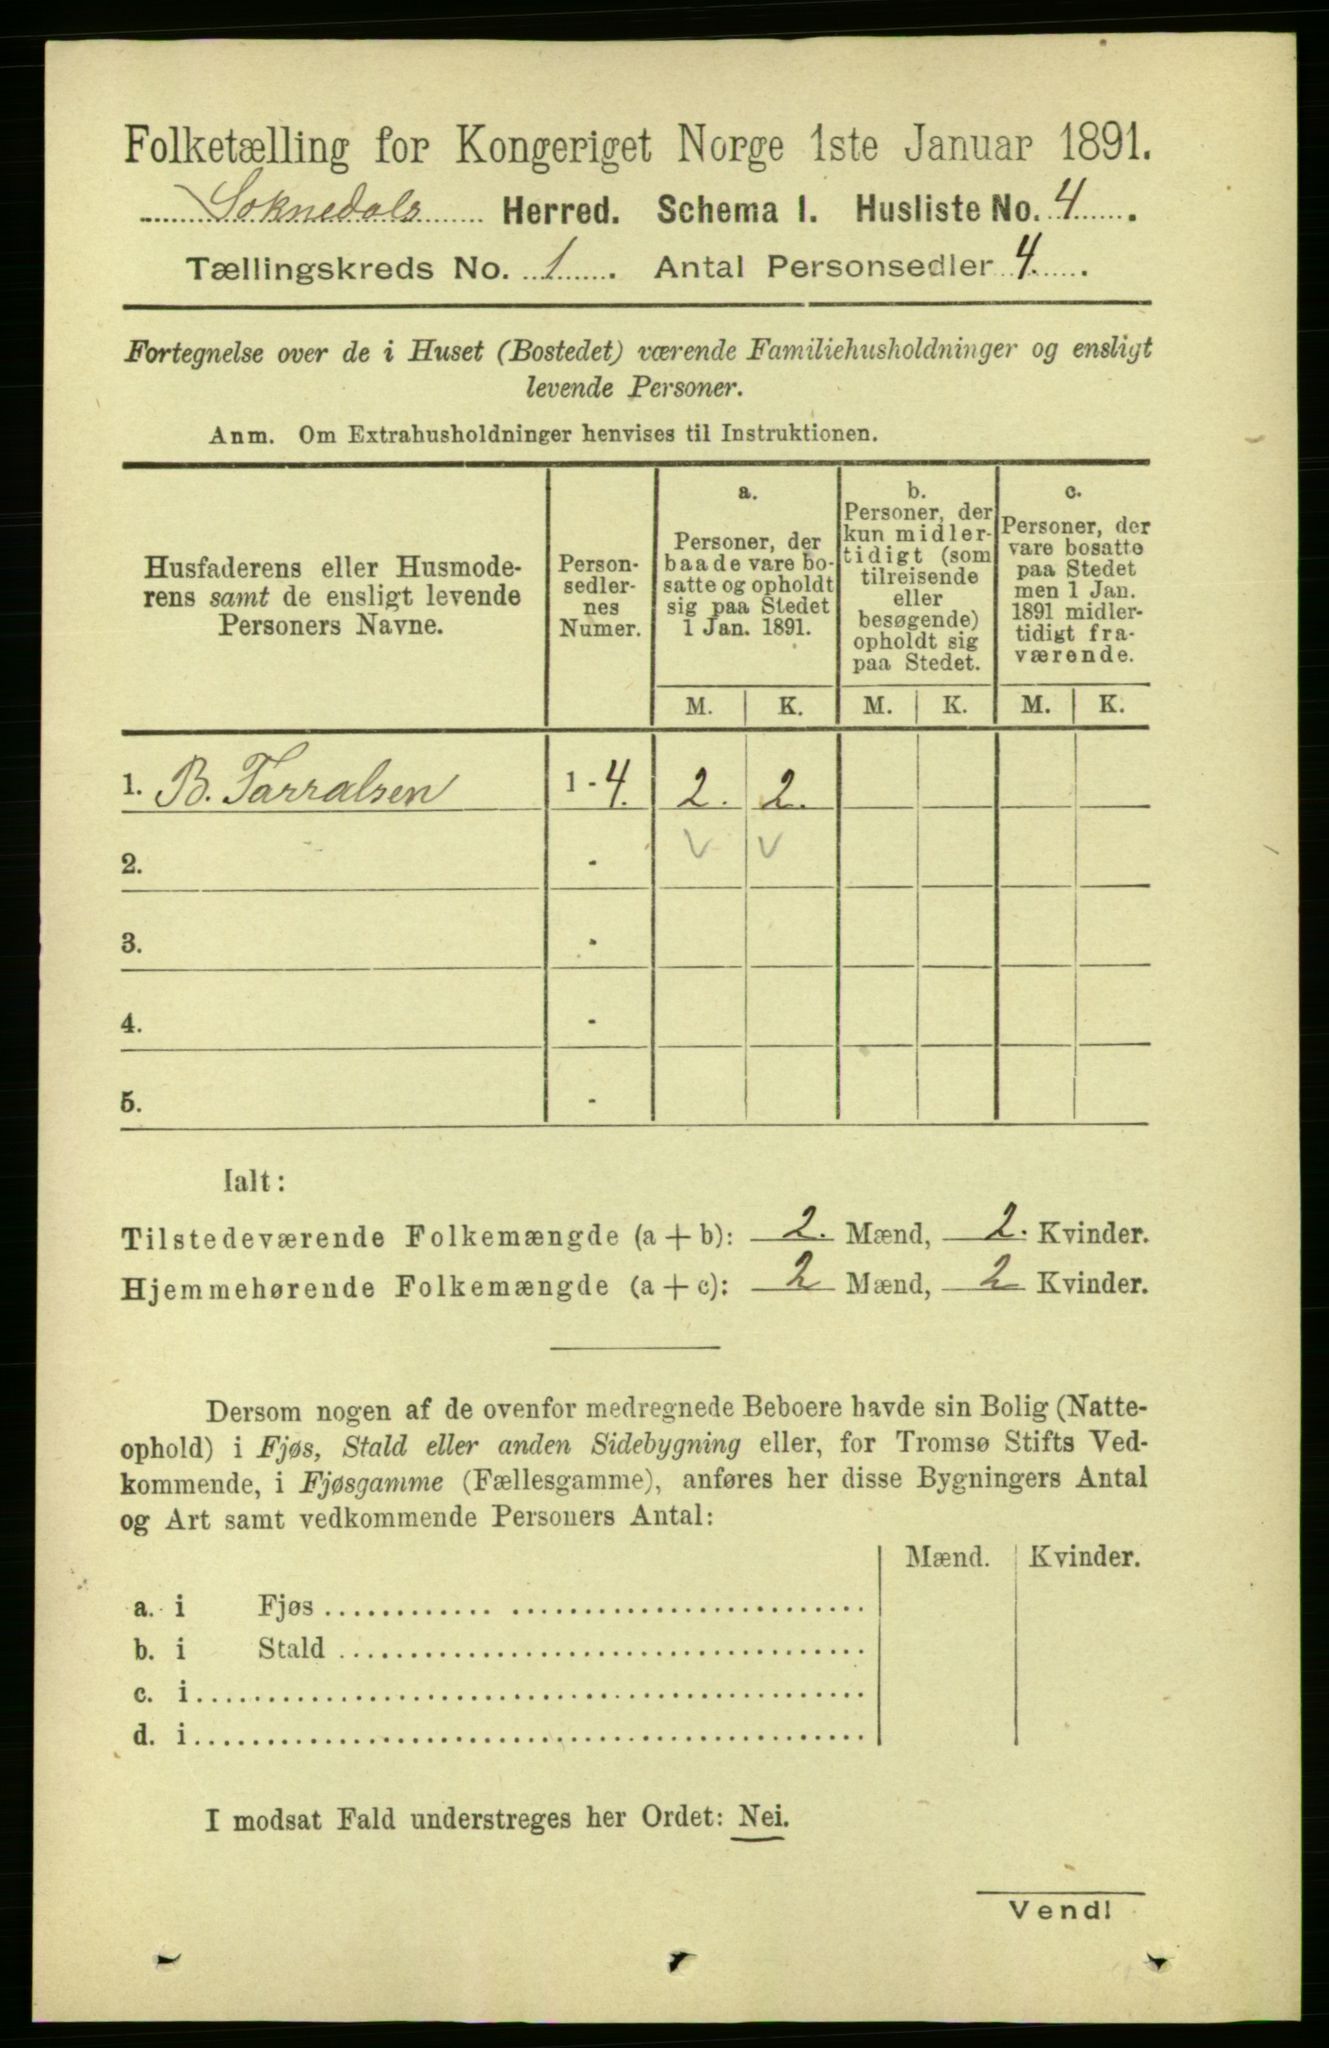 Folketælling for Kongeriget Norge 1ste Januar 1891.
Soknedals Herred. Schema I. Husliste No. 4.
Tællingskreds No. 1. Antal Personsedler 4.
Fortegnelse over de i Huset (Bostedet) værende Familiehusholdninger og ensligt
levende Personer.
Anm. Om Extrahusholdninger henvises til Instruktionen.
Husfaderens eller Husmode-
rens samt de ensligt levende
Personers Navne.
Person-
sedler-
nes
Numer.
a.
Personer, der
baade vare bo-
satte og opholdt
sig paa Stedet
1 Jan. 1891.
b.
Personer, der
kun midler-
tidigt (som
tilreisende
eller
besøgende)
opholdt sig
paa Stedet.
c.
Personer, der
vare bosatte
paa Stedet
men 1 Jan.
1891 midler-
tidigt fra-
værende.
M. K. M. K. M. K.
1. B. Tarralsen 1-4. 2. 2.
2. - v v
3. -
4. -
5. -
Ialt:
Tilstedeværende Folkemængde (a + b): 2. Mænd, 2. Kvinder.
Hjemmehørende Folkemængde (a + c): 2 Mænd, 2 Kvinder.
Dersom nogen af de ovenfor medregnede Beboere havde sin Bolig (Natte-
ophold) i Fjøs, Stald eller anden Sidebygning eller, for Tromsø Stifts Ved-
kommende, i Fjøsgamme (Fællesgamme), anføres her disse Bygningers Antal
og Art samt vedkommende Personers Antal:
Mænd. Kvinder.
a. i Fjøs
b. i Stald
c. i
d. i
I modsat Fald understreges her Ordet: Nei.
Vend!